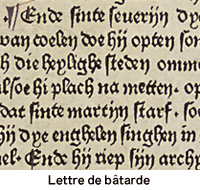 Ende sinte seuerijn dye
van coelen doe hij opten son
h die heylighe steden omme
alsoe hi plach na metten· op
dat sinte martijn starf· soe
hi dye enghelen singhen in
el· Ende hij riep sijn archp
Lettre de bâtarde